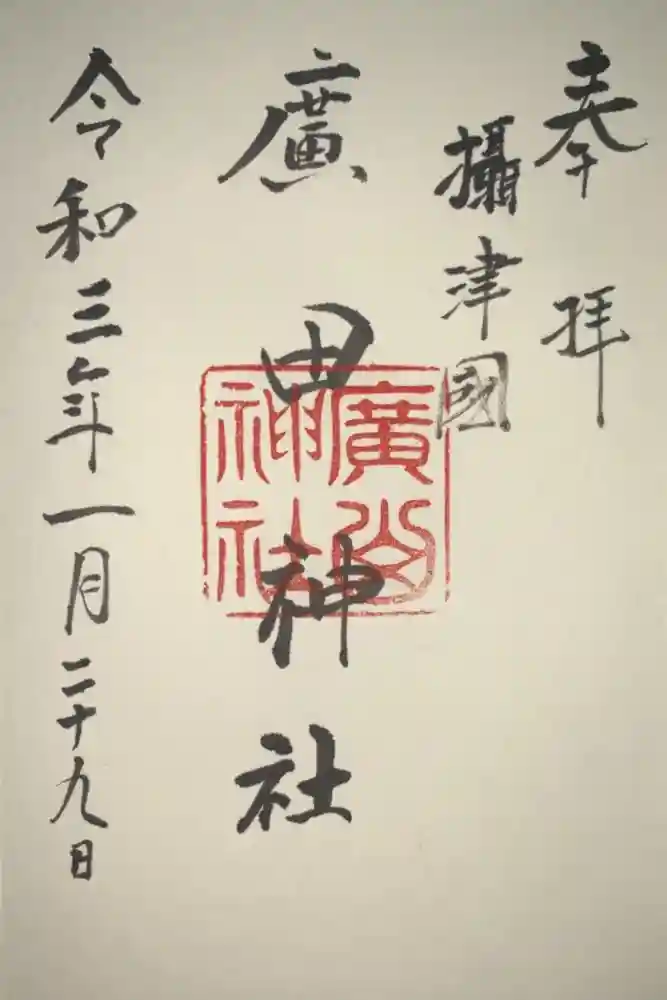 奉拝
攝津國
廣田神社
令和三年一月二十九日